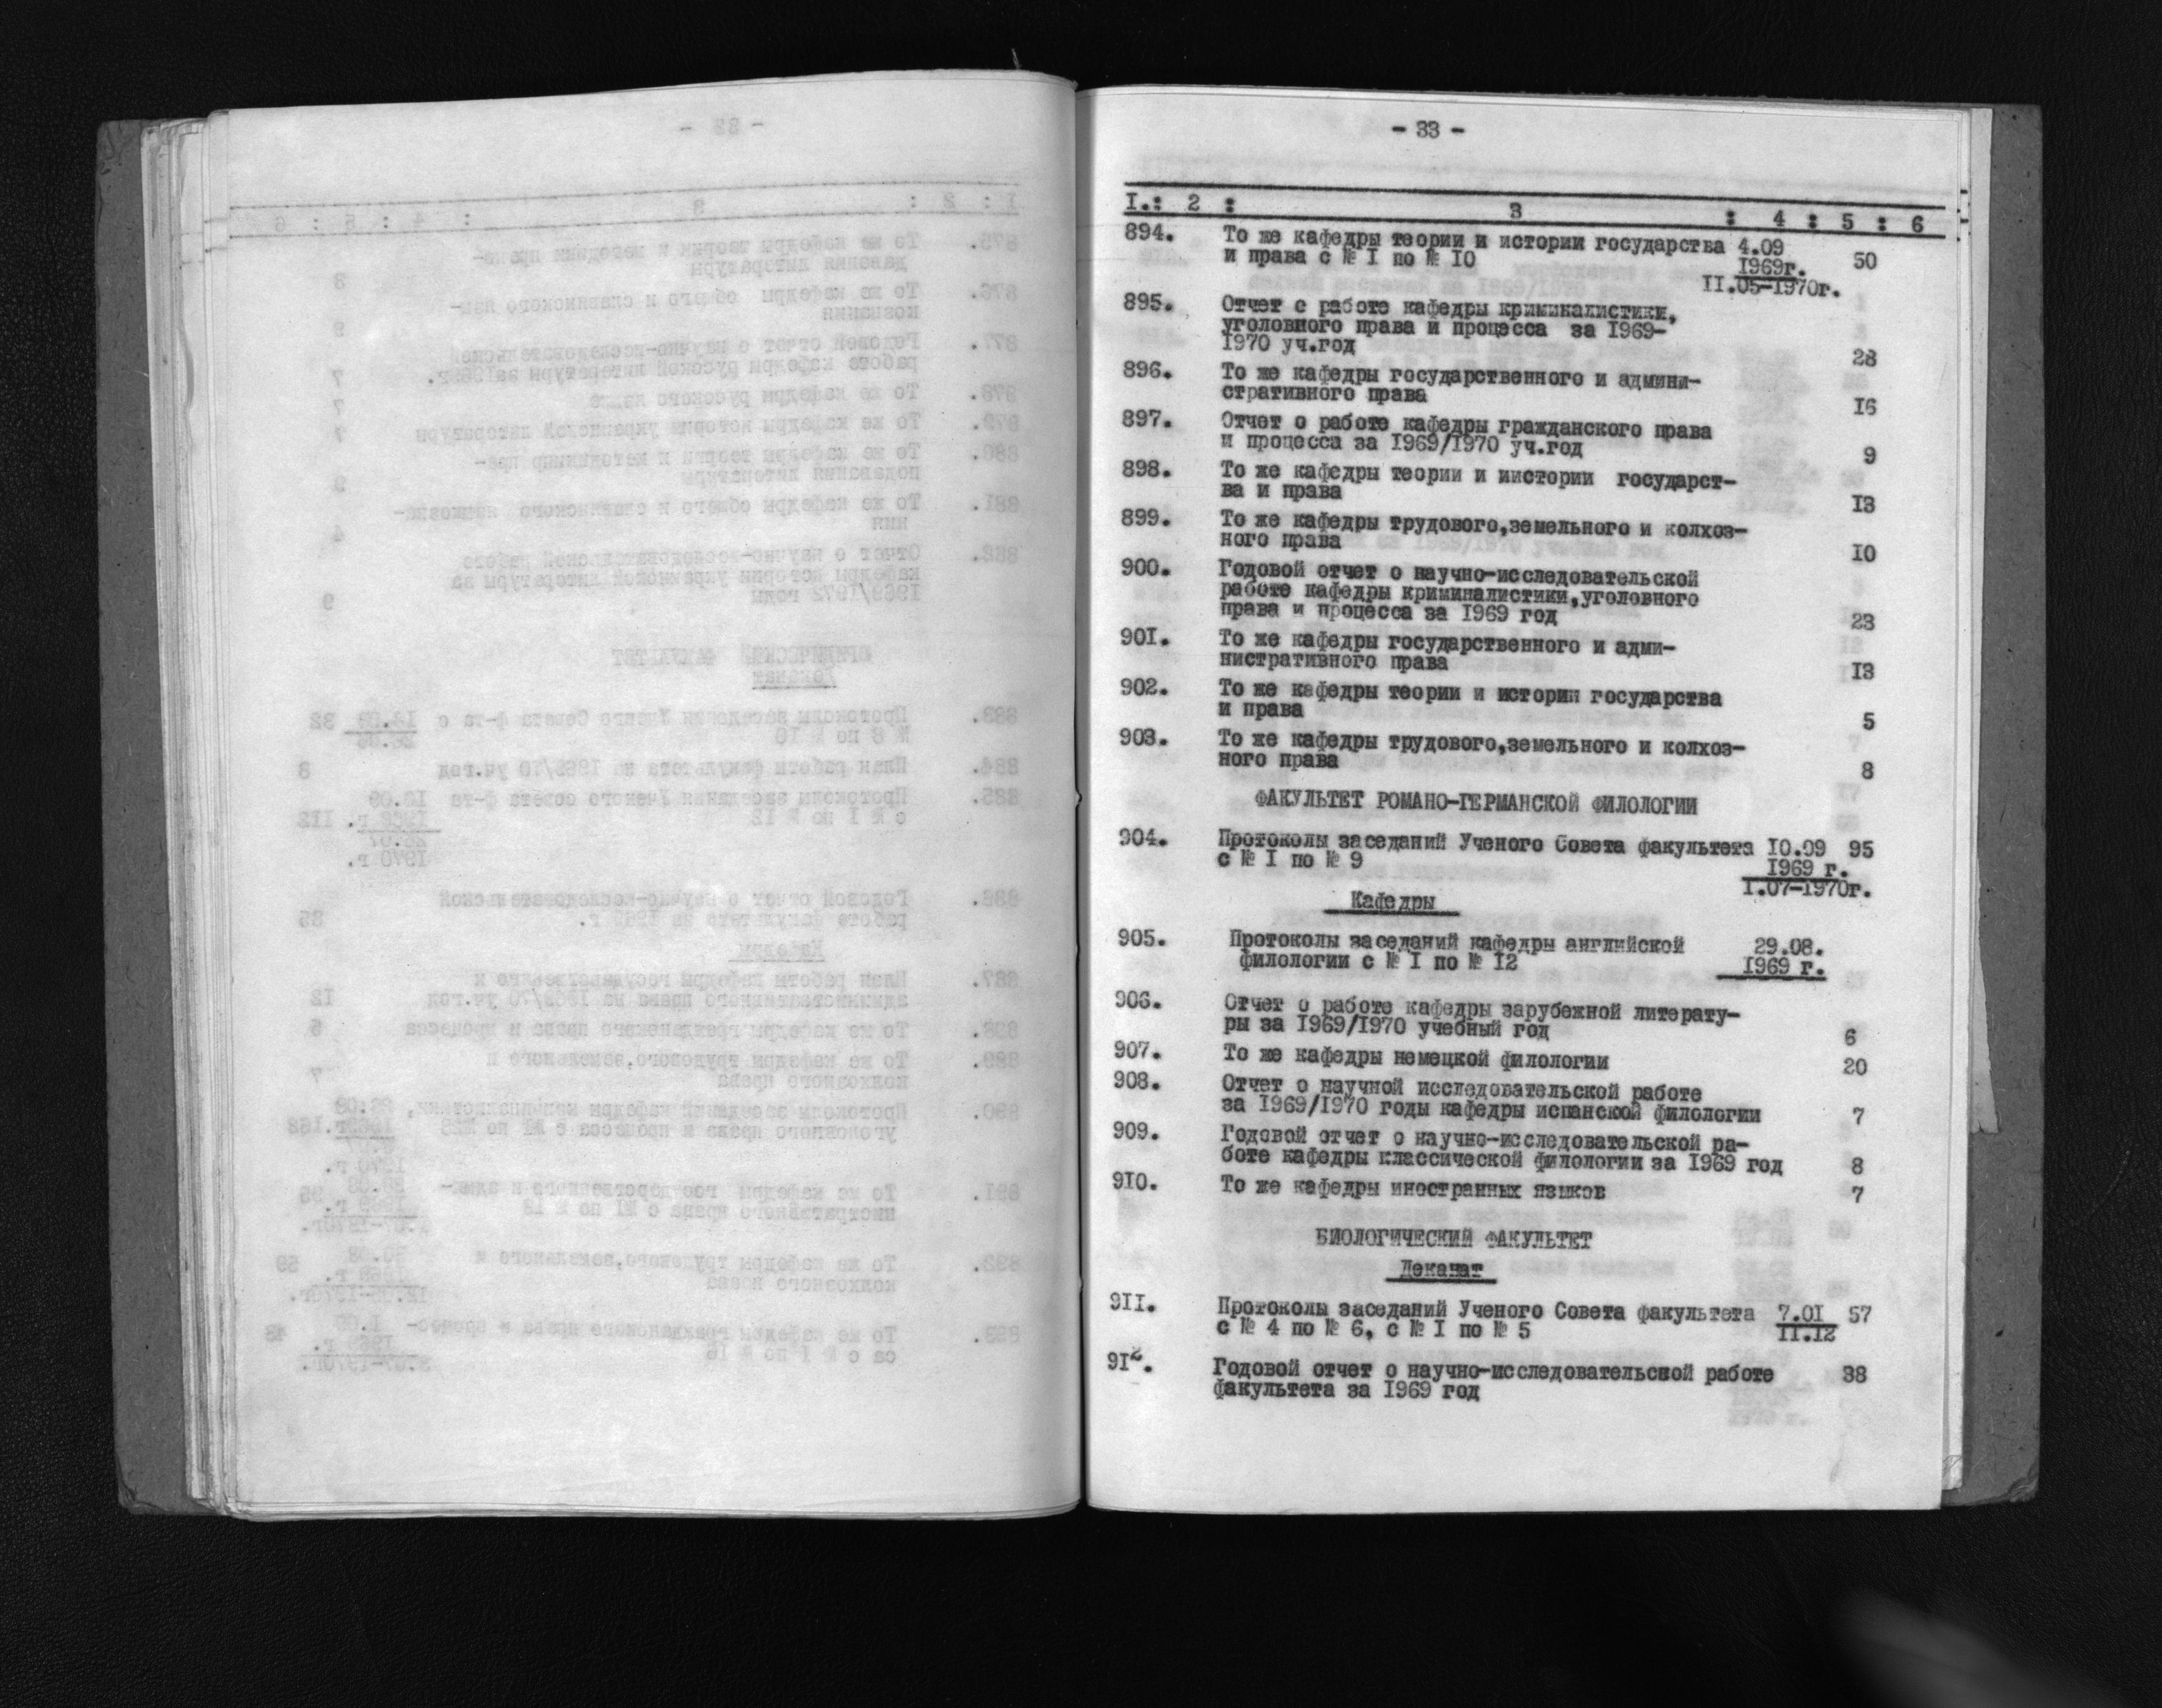 - 33 -
I.: 2 : 3 : 4 : 5 : 6
894. То же кафедры теории и истории государства 4.09
и права с № I по № IO 1969г. 50
II.05-1970г.
895. Отчет с работе кафедры криминалистики,
уголовного права и процесса за I969-
I970 уч.год 28
896. То же кафедры государственного и админи-
стративного права I6
897. Отчет о работе кафедры гражданского права
и процесса за I969/I970 уч.год 9
898. То же кафедры теории и иистории государст-
ва и права I3
899. То же кафедры трудового,земельного и колхоз-
ного права IO
900. Годовой отчет о научно-исследовательской
работе кафедры криминалистики,уголовного
права и процесса за I969 год 23
90I. То же кафедры государственного и адми-
нистративного права I3
902. То же кафедры теории и истории государства
и права 5
903. То же кафедры трудового,земельного и колхоз-
ного права 8
ФАКУЛЬТЕТ РОМАНО-ГЕРМАНСКОЙ ФИЛОЛОГИИ
904. Протоколы заседаний Ученого Совета факультета IO.09 95
с № I по № 9 I969 г.
I.07-I970г.
Кафедры
905. Протоколы заседаний кафедры английской 29.08.
филологии с № I по № I2 I969 г.
906. Отчет о работе кафедры зарубежной литерату-
ры за I969/I970 учебный год 6
907. То же кафедры немецкой филологии 20
908. Отчет о научной исследовательской работе
за I969/I970 годы кафедры испанской филологии 7
909. Годовой отчет о научно-исследовательской ра-
боте кафедры классической филологии за I969 год 8
9IO. То же кафедры иностранных языков 7
БИОЛОГИЧЕСКИЙ ФАКУЛЬТЕТ
Деканат
9II. Протоколы заседаний Ученого Совета факультета 7.0I 57
с № 4 по № 6, с № I по № 5 II.I2
9I2. Годовой отчет о научно-исследовательской работе 38
факультета за I969 год